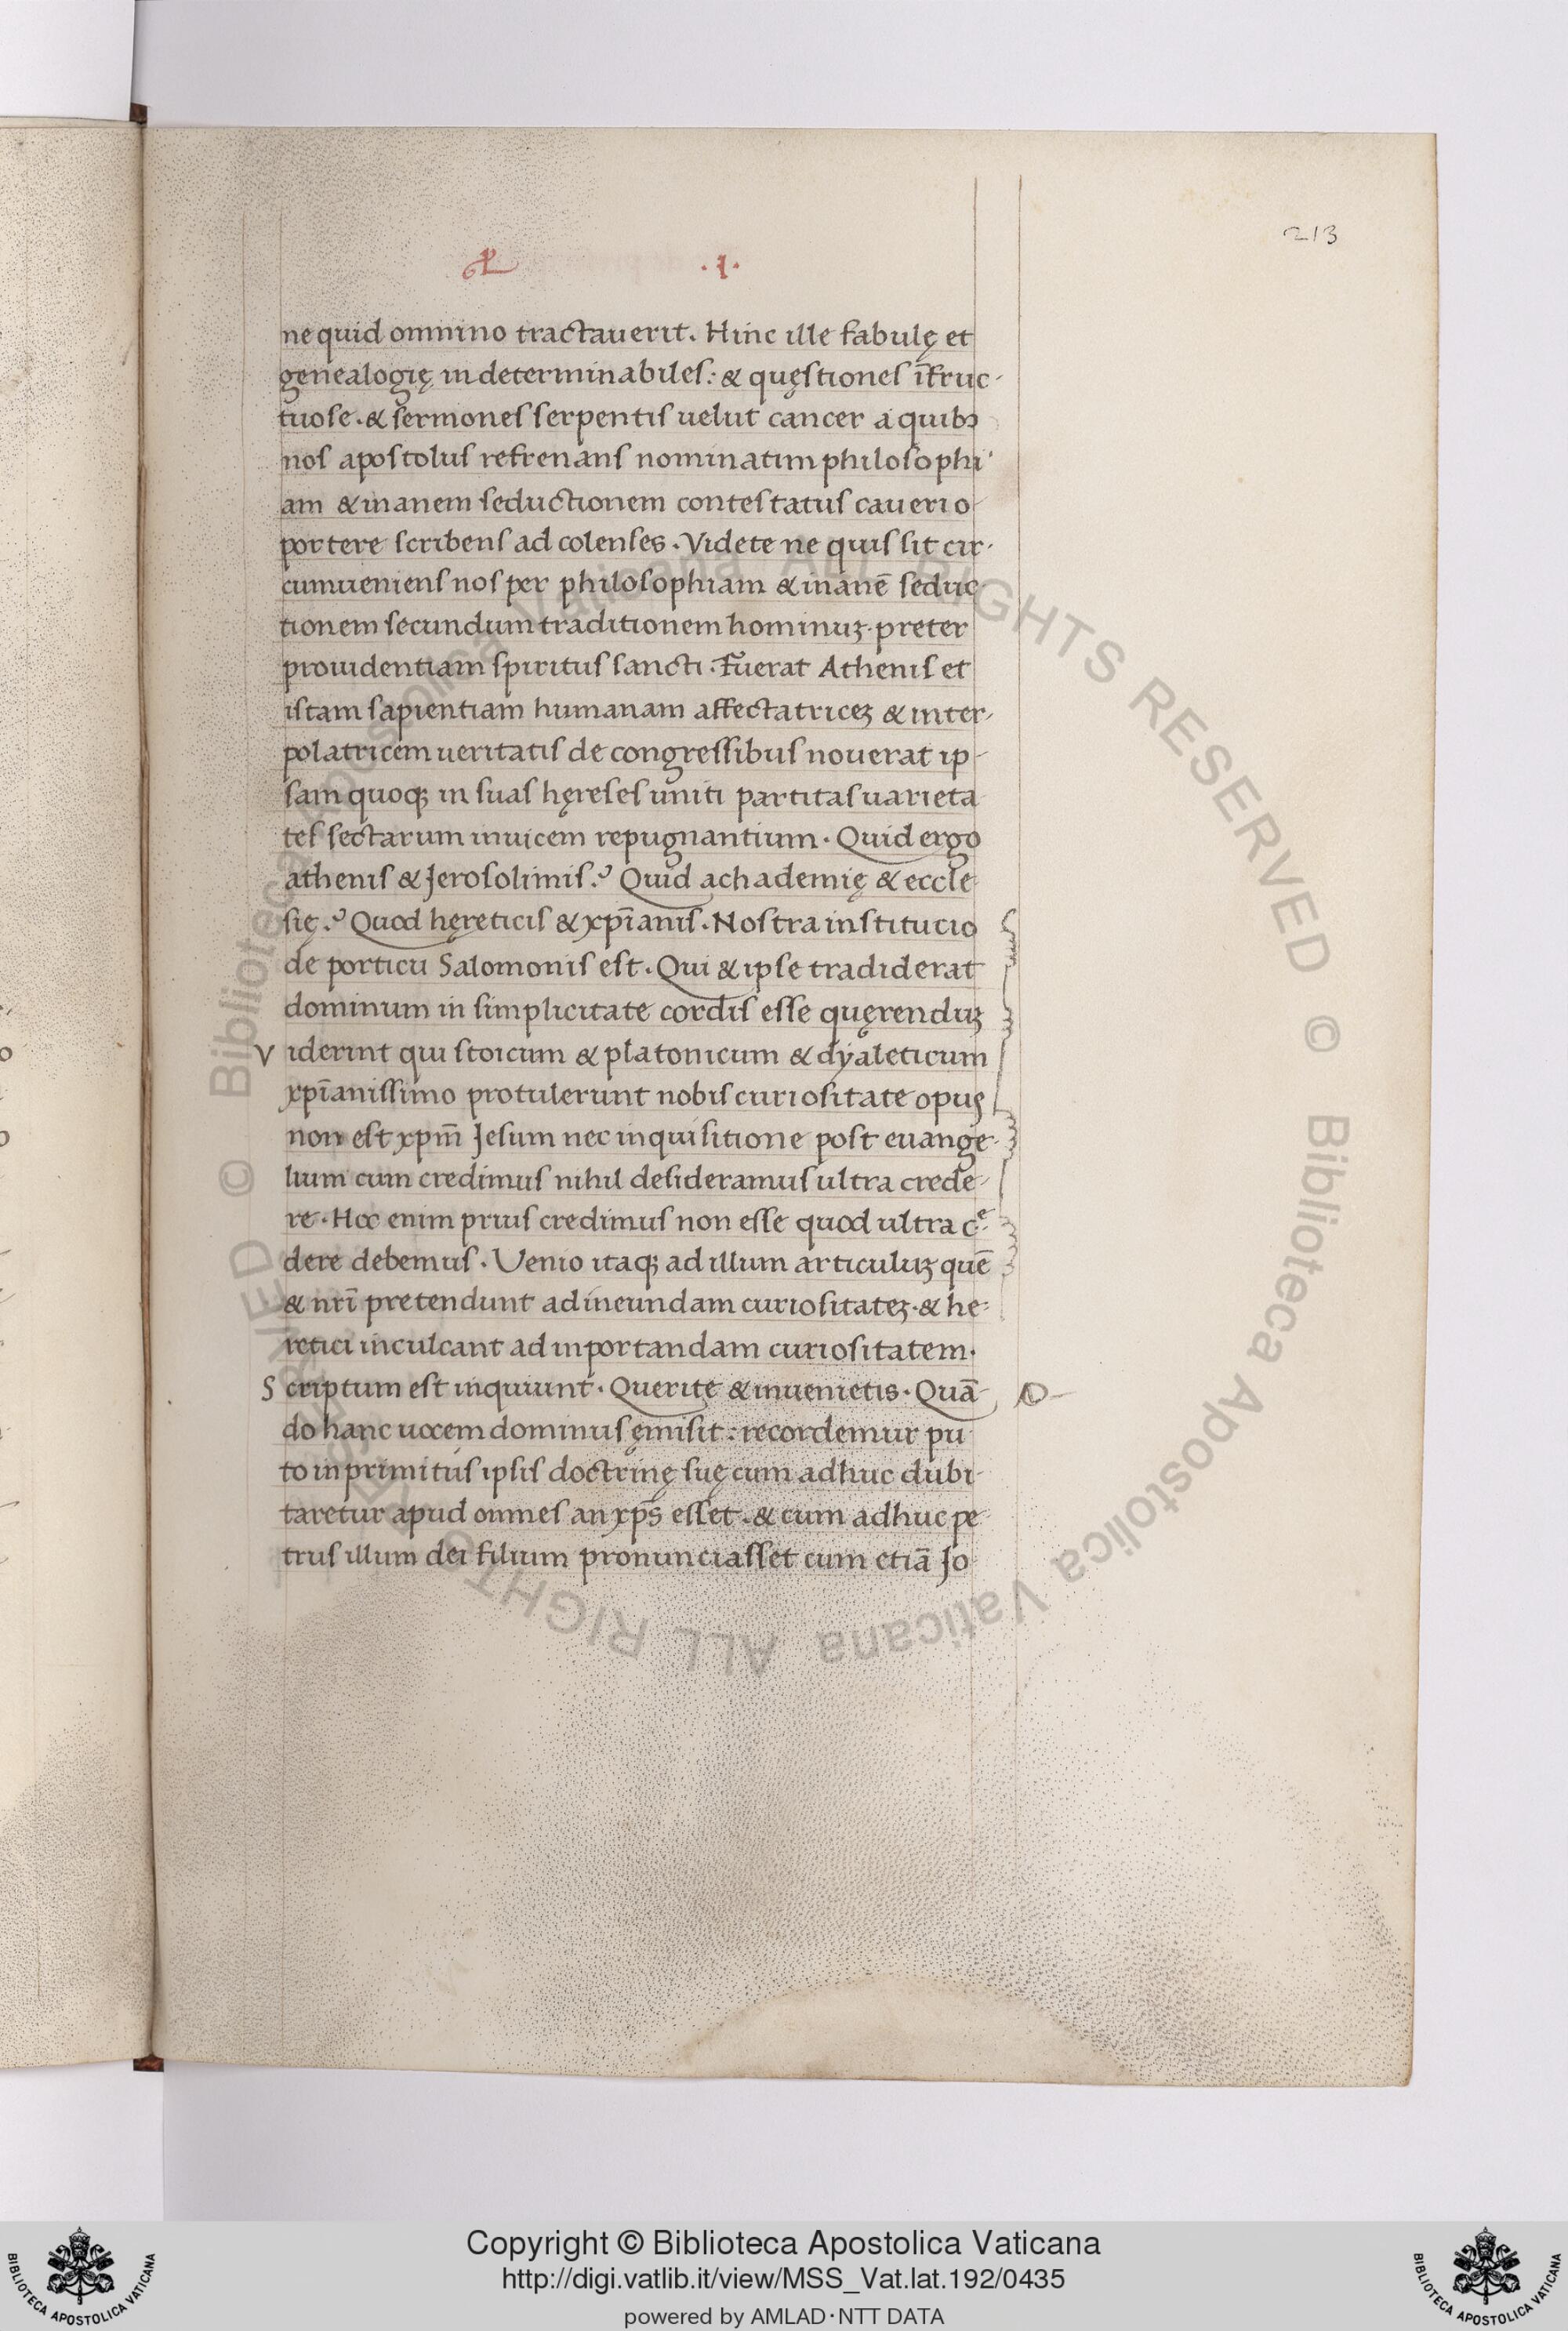 213
·I·
ne quid omnino tractauerit. Hinc ille fabulę et
genealogię indeterminabiles: & quęstiones īfruc-
tuose. & sermones serpentis uelut cancer a quibꝫ
nos apostolus refrenans nominatim philosophi
am & inanem seductionem contestatus caueri o-
portere scribens ad colenses. Videte ne quis sit cir-
cumueniens nos per philosophiam & inanē seduc
tionem secundum traditionem hominuꝫ. preter
prouidentiam spiritus sancti. Fuerat Athenis et
istam sapientiam humanam affectatriceꝫ & inter-
polatricem ueritatis de congressibus nouerat ip-
sam quoqꝫ in suas hęreses uniti partitas uarieta
tes sectarum inuicem repugnantium. Quid ergo
athenis & Jerosolimis? Quid achademię & eccle-
się? Quod hęreticis & xp̄ianis. Nostra institucio
de porticu Salomonis est. Qui & ipse tradiderat
dominum in simplicitate cordis esse quęrenduꝫ
Viderint qui stoicum & platonicum & dyaleticum
xp̄ianissimo protulerunt nobis curiositate opus
non est xpm̄ Jesum nec inquisitione post euange-
lium cum credimus nihil desideramus ultra crede-
re. Hoc enim prius credimus non esse quod ultra cͤ
dere debemus. Venio itaqꝫ ad illum articuluꝫ quē
& nrī pretendunt ad ineundam curiositateꝫ. & he-
retici inculcant ad inportandam curiositatem.
Scriptum est inquiunt. Querite & inuenietis. Quā-
do hanc uocem dominus ęmisit: recordemur pu
to in primitus ipsis doctrinę suę cum adhuc dubi-
taretur apud omnes an xp̄s esset. & cum adhuc pe
trus illum dei filium pronunciasset cum etiā Jo
Copyright © Biblioteca Apostolica Vaticana
http://digi.vatlib.it/view/MSS_Vat.lat.192/0435
powered by AMLAD·NTT DATA